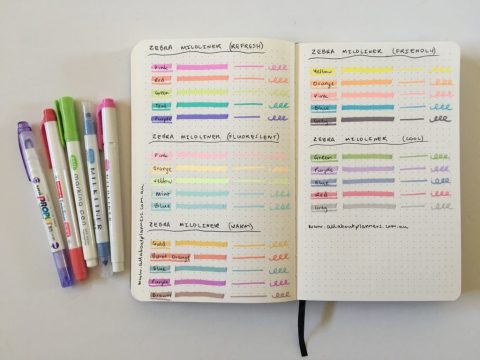 ZEBRA MILDLINER (REFRESH)
Pink
Red
Green
Teal
Purple
ZEBRA MILDLINER (FLUORESCENT)
Pink
Orange
Yellow
Mint
Blue
ZEBRA MILDLINER (WARM)
Gold
Burnt Orange
Blue
Purple
Brown
www.allaboutplanners.com.au
ZEBRA MILDLINER (FRIENDLY)
Yellow
Orange
Pink
Blue
Grey
ZEBRA MILDLINER (COOL)
Green
Purple
Blue
Red
Grey
www.allaboutplanners.com.au
MILDLINER